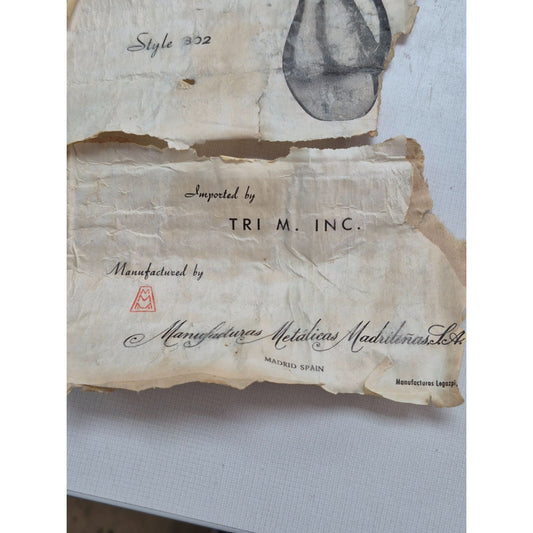 Style 302
Imported by
TRI M. INC.
Manufactured by
Manufacturas Metálicas Madrileñas, S.A.
MADRID SPAIN
Manufacturas Legazpi,